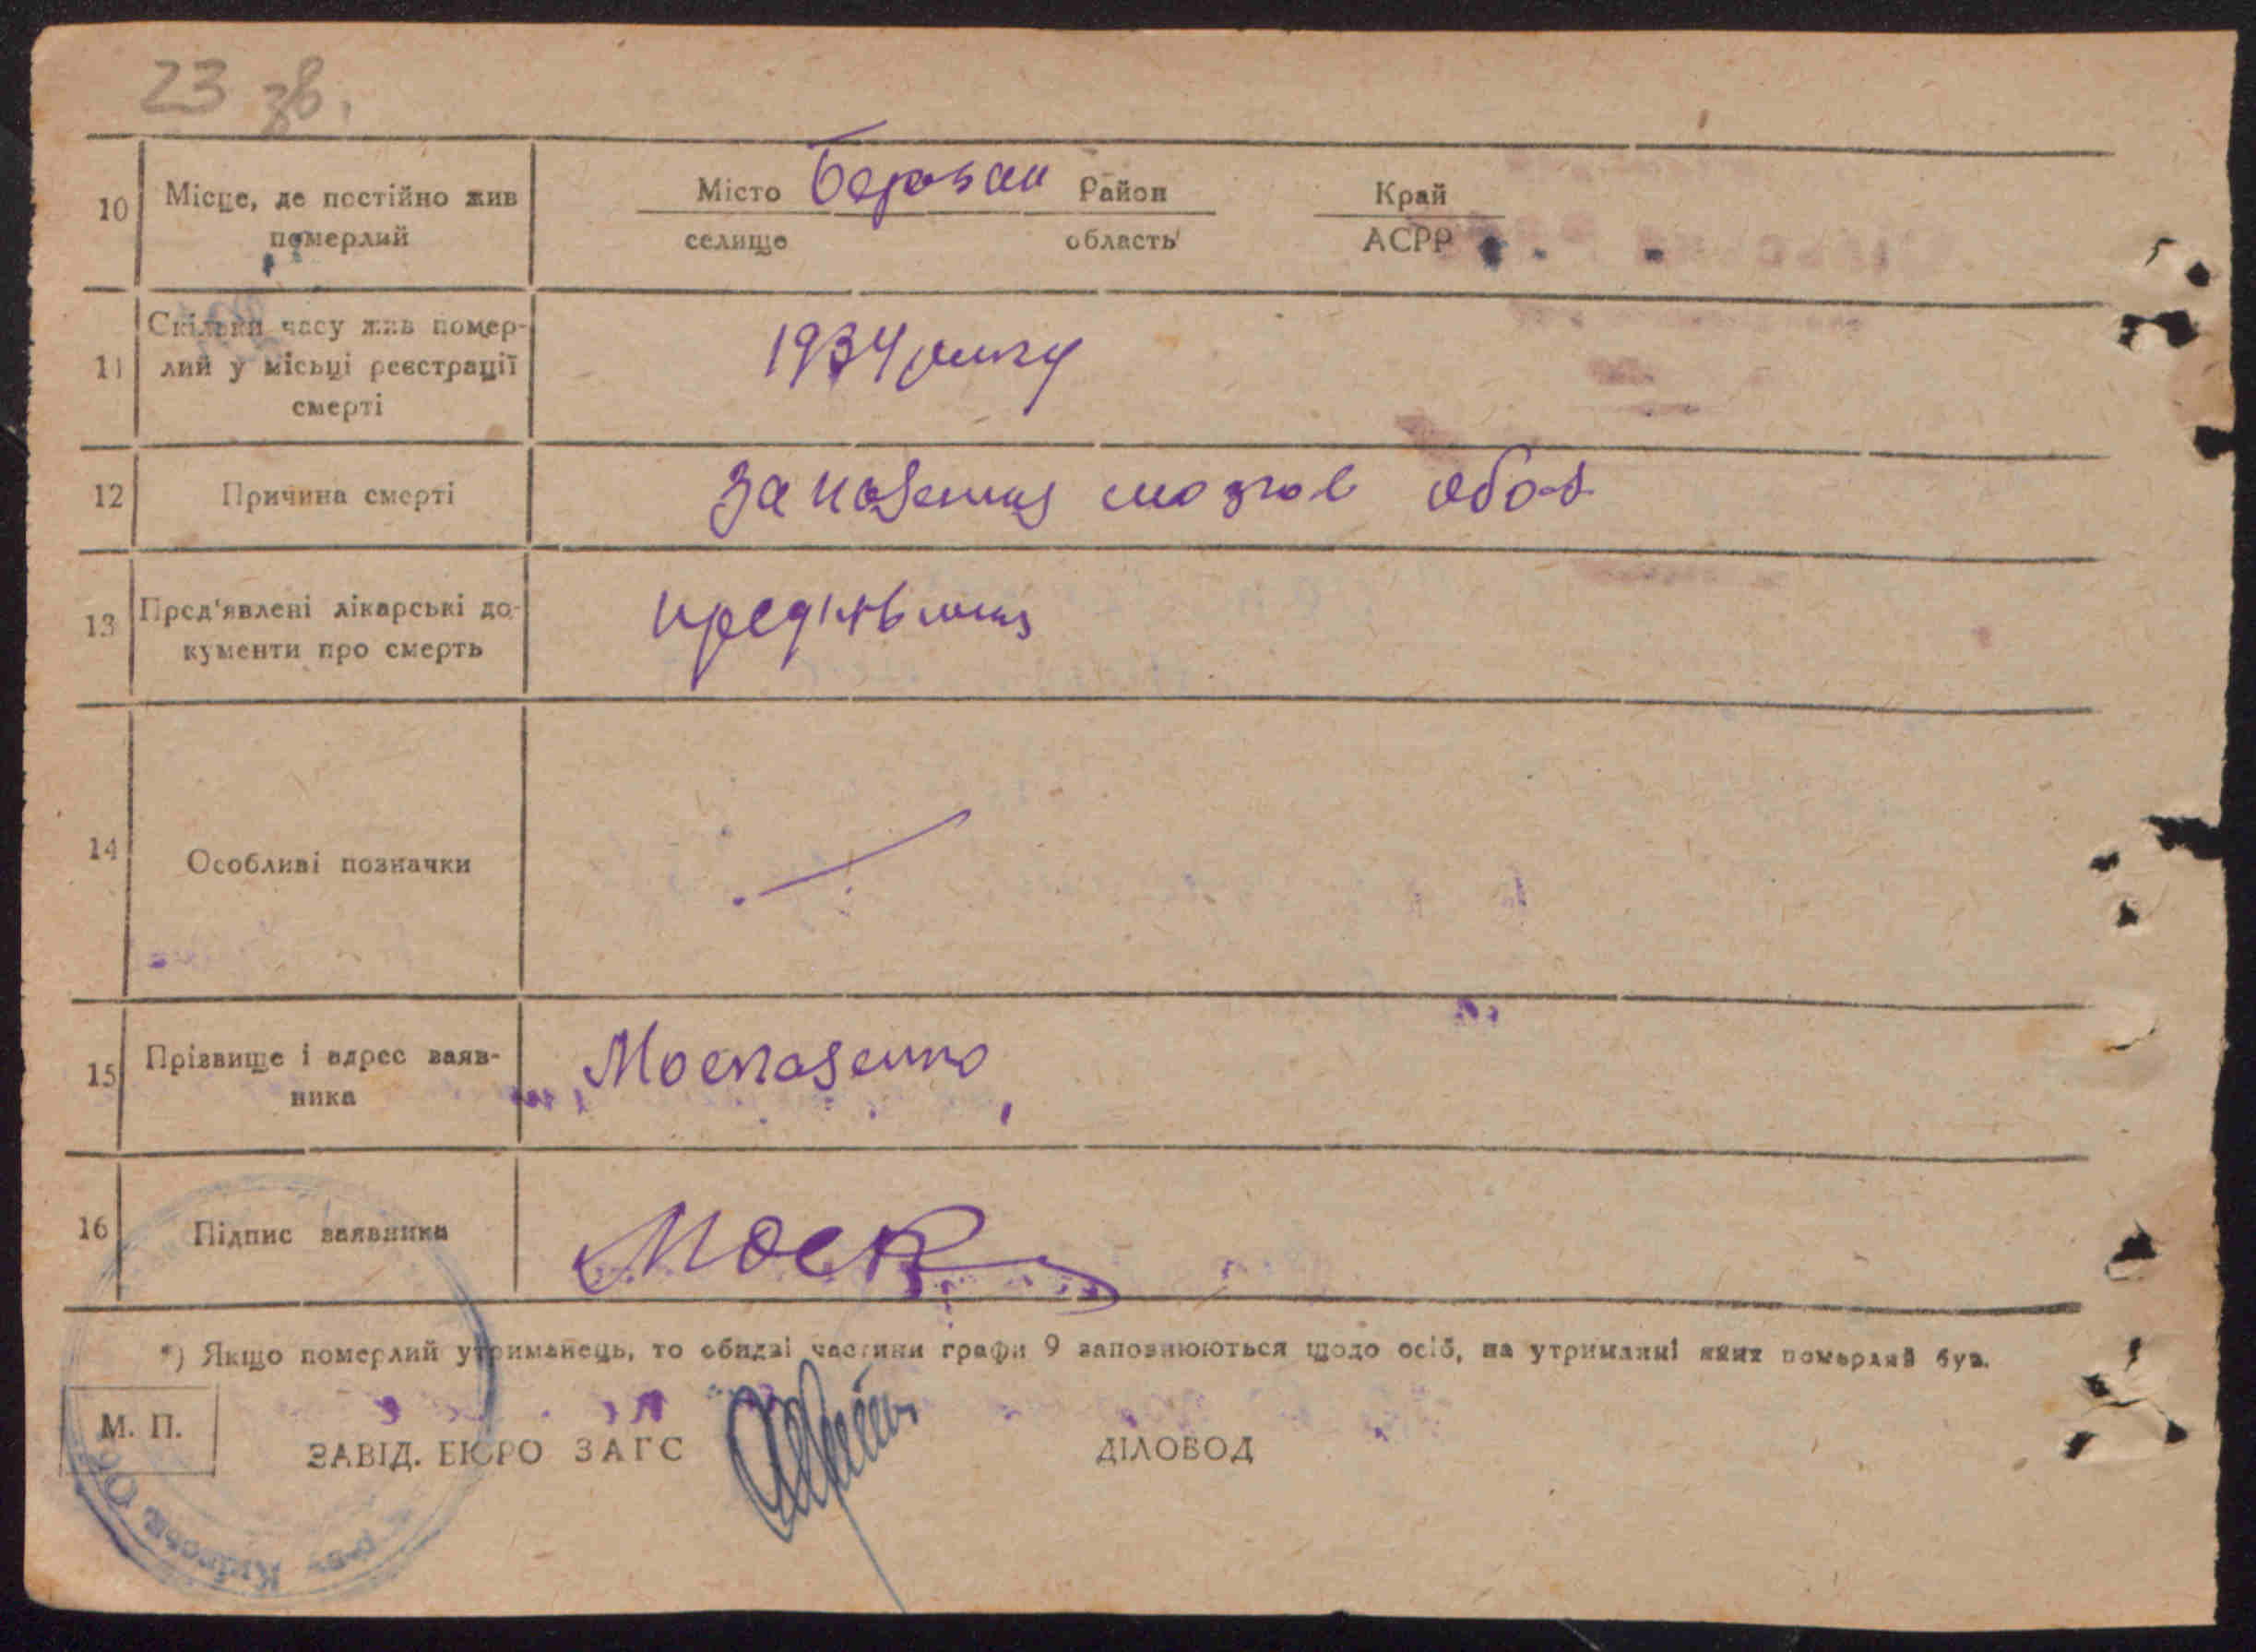 23 зв.
10 Місце, де постійно жив померлий
Місто Район Край
селище область АСРР
11 Скільки часу жив помер-
лий у місьці реєстрації
смерті
1934 року
12 Причина смерті
запалення мозгов обол
13 Пред'явлені лікарські до-
кументи про смерть
14 Особливі позначки
15 Прізвище і адрес заяв-
ника
16 Підпис заявника
*) Якщо померлий утриманець, то обидві частини графи 9 заповнюються щодо осіб, на утриманні яких померлий був.
М. П.
ЗАВІД. БЮРО ЗАГС ДІЛОВОД
р-ву Київськ. Обл